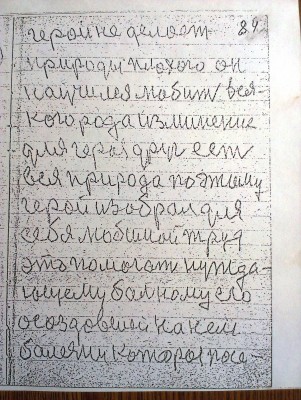 89
герой не делает
природы плохого он
научился любит вся-
кого рода изминение
для героя друг ест
вся природа поэтому
герой избрал для
себя любимой труд
это помогат нужда-
ющему болному его
болями которы посе-